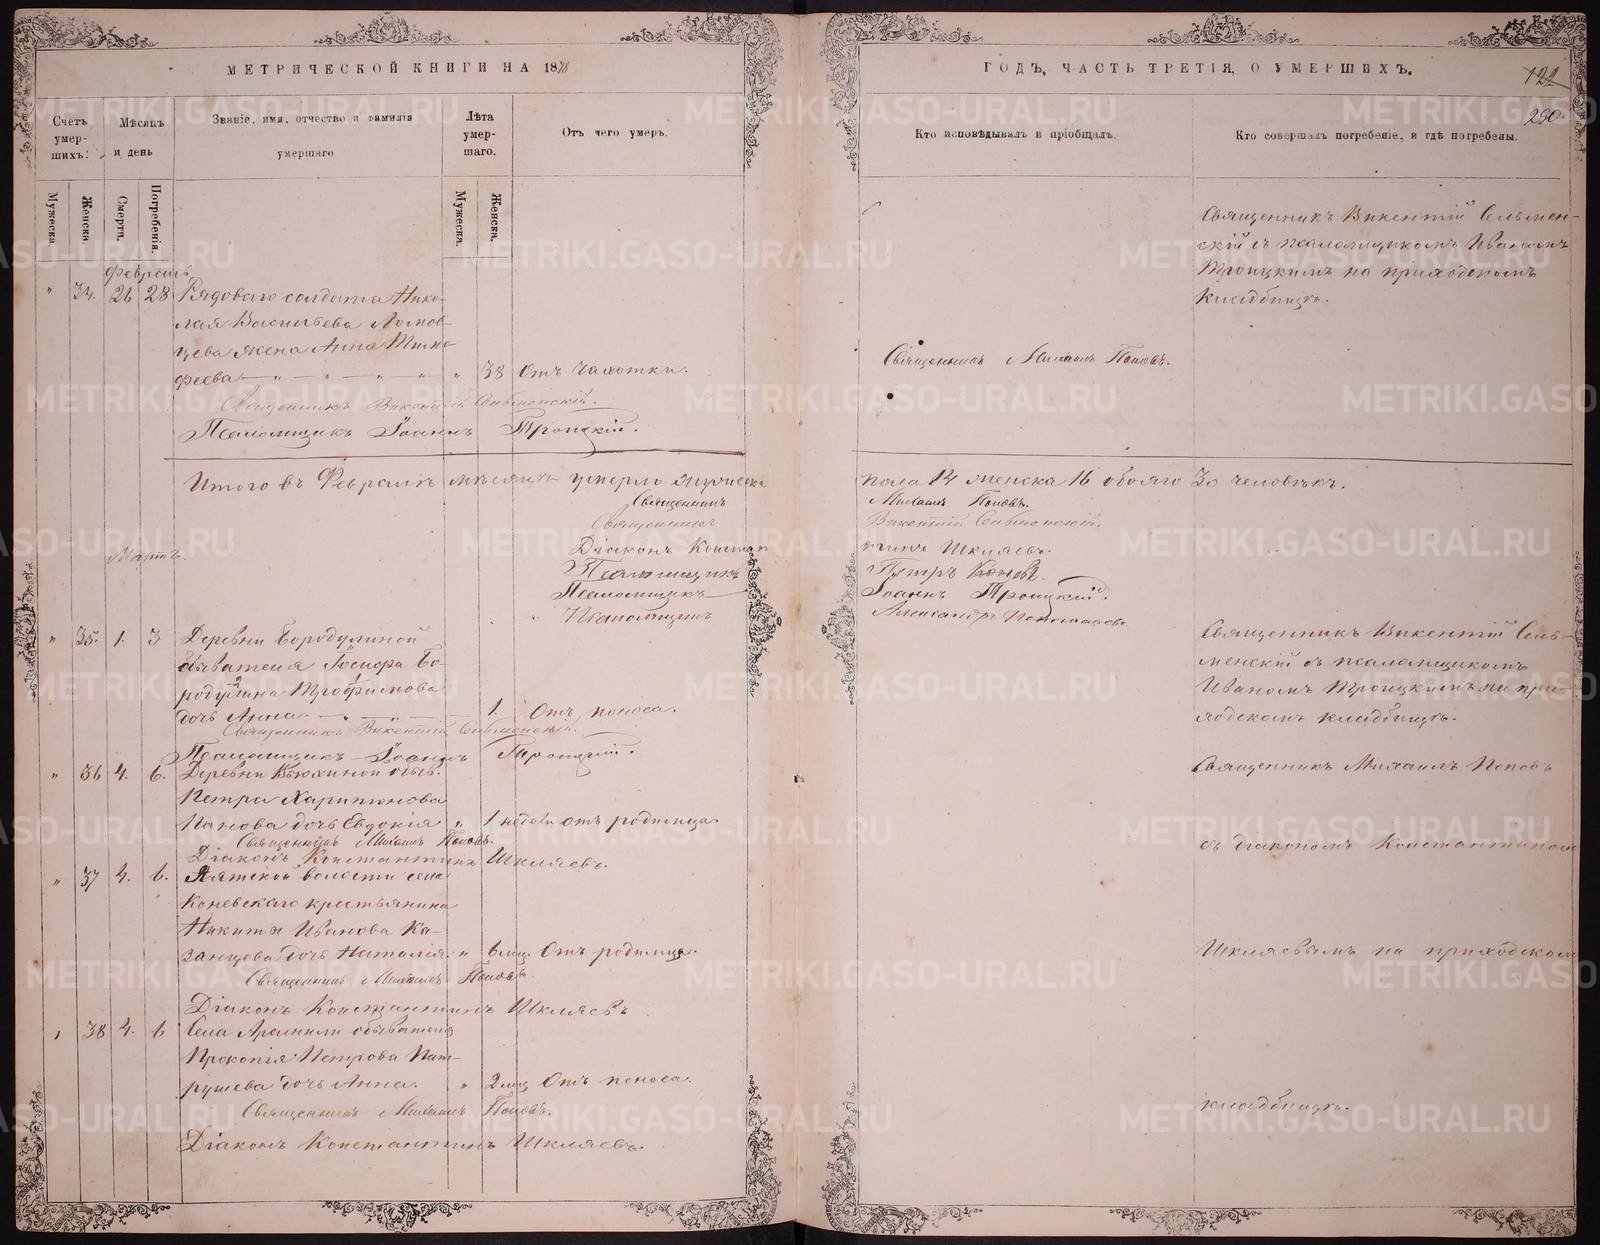 МЕТРИЧЕСКОЙ КНИГИ НА 1878
Счетъ умер-шихъ.
Мѣсяцъ и день
Званіе, имя, отчество и фамилія умершаго
Лѣта умер-шаго.
Отъ чего умеръ.
Мужеска.
Женска.
Смерти.
Погребенія.
Мужеска.
Женска.
Февраль
" 34. 26 28 Рядоваго солдата Нико-
лая Васильева Ломов-
цева жена Анна Тимо-
феева " 38 Отъ чахотки.
Священникъ Викентій Сельменскій.
Псаломщикъ Іоаннъ Троицкій.
Итого въ Февралѣ мѣсяцѣ умерло мужеска
Священникъ
Священникъ
Діаконъ Констан
Псаломщикъ
Псаломщикъ
Псаломщикъ
Мартъ.
" 35. 1. 3 Деревни Бородулиной
обывателя Іосифа Бо-
родулина Трофимова
дочь Анна 1. Отъ поноса.
Священникъ Викентій Сельменскій.
Псаломщикъ Іоаннъ Троицкій.
" 36 4. 6. Деревни обыв.
Петра Харитонова
Панова дочь Евдокія " 1 недели отъ родимца
Священникъ Михаилъ Поповъ.
Діаконъ Константинъ Шкляевъ.
" 37 4. 6. волости села
Коневскаго крестьянина
Никиты Иванова Ка-
занцева дочь Наталія " 6 мѣц. Отъ родимца.
Священникъ Михаилъ Поповъ.
Діаконъ Константинъ Шкляевъ
" 38 4. 6 Села Арамили обывателя
Прокопія Петрова Пат-
рушева дочь Анна. " 2 мѣц Отъ поноса.
Священникъ Михаилъ Поповъ.
Діаконъ Константинъ Шкляевъ.
ГОДЪ, ЧАСТЬ ТРЕТІЯ, О УМЕРШИХЪ.
122
290.
Кто исповѣдывалъ и пріобщалъ.
Кто совершалъ погребеніе, и гдѣ погребены.
Священникъ Викентій Сельмен-
скій съ псаломщикомъ Иваномъ
Троицкимъ на приходскомъ
кладбищѣ.
Священникъ Михаилъ Поповъ.
пола 14 женска 16 обоего 30 человѣкъ.
Михаилъ Поповъ.
Викентій Сельменскій.
тинъ Шкляевъ.
Петръ
Іоаннъ Троицкій.
Александръ Пономаревъ
Священникъ Викентій Сель-
менскій съ псаломщикомъ
Иваномъ Троицкимъ на при-
ходскомъ кладбищѣ.
Священникъ Михаилъ Поповъ
съ діакономъ Константиномъ
Шкляевымъ на приходскомъ
кладбищѣ.
METRIKI.GASO-URAL.RU